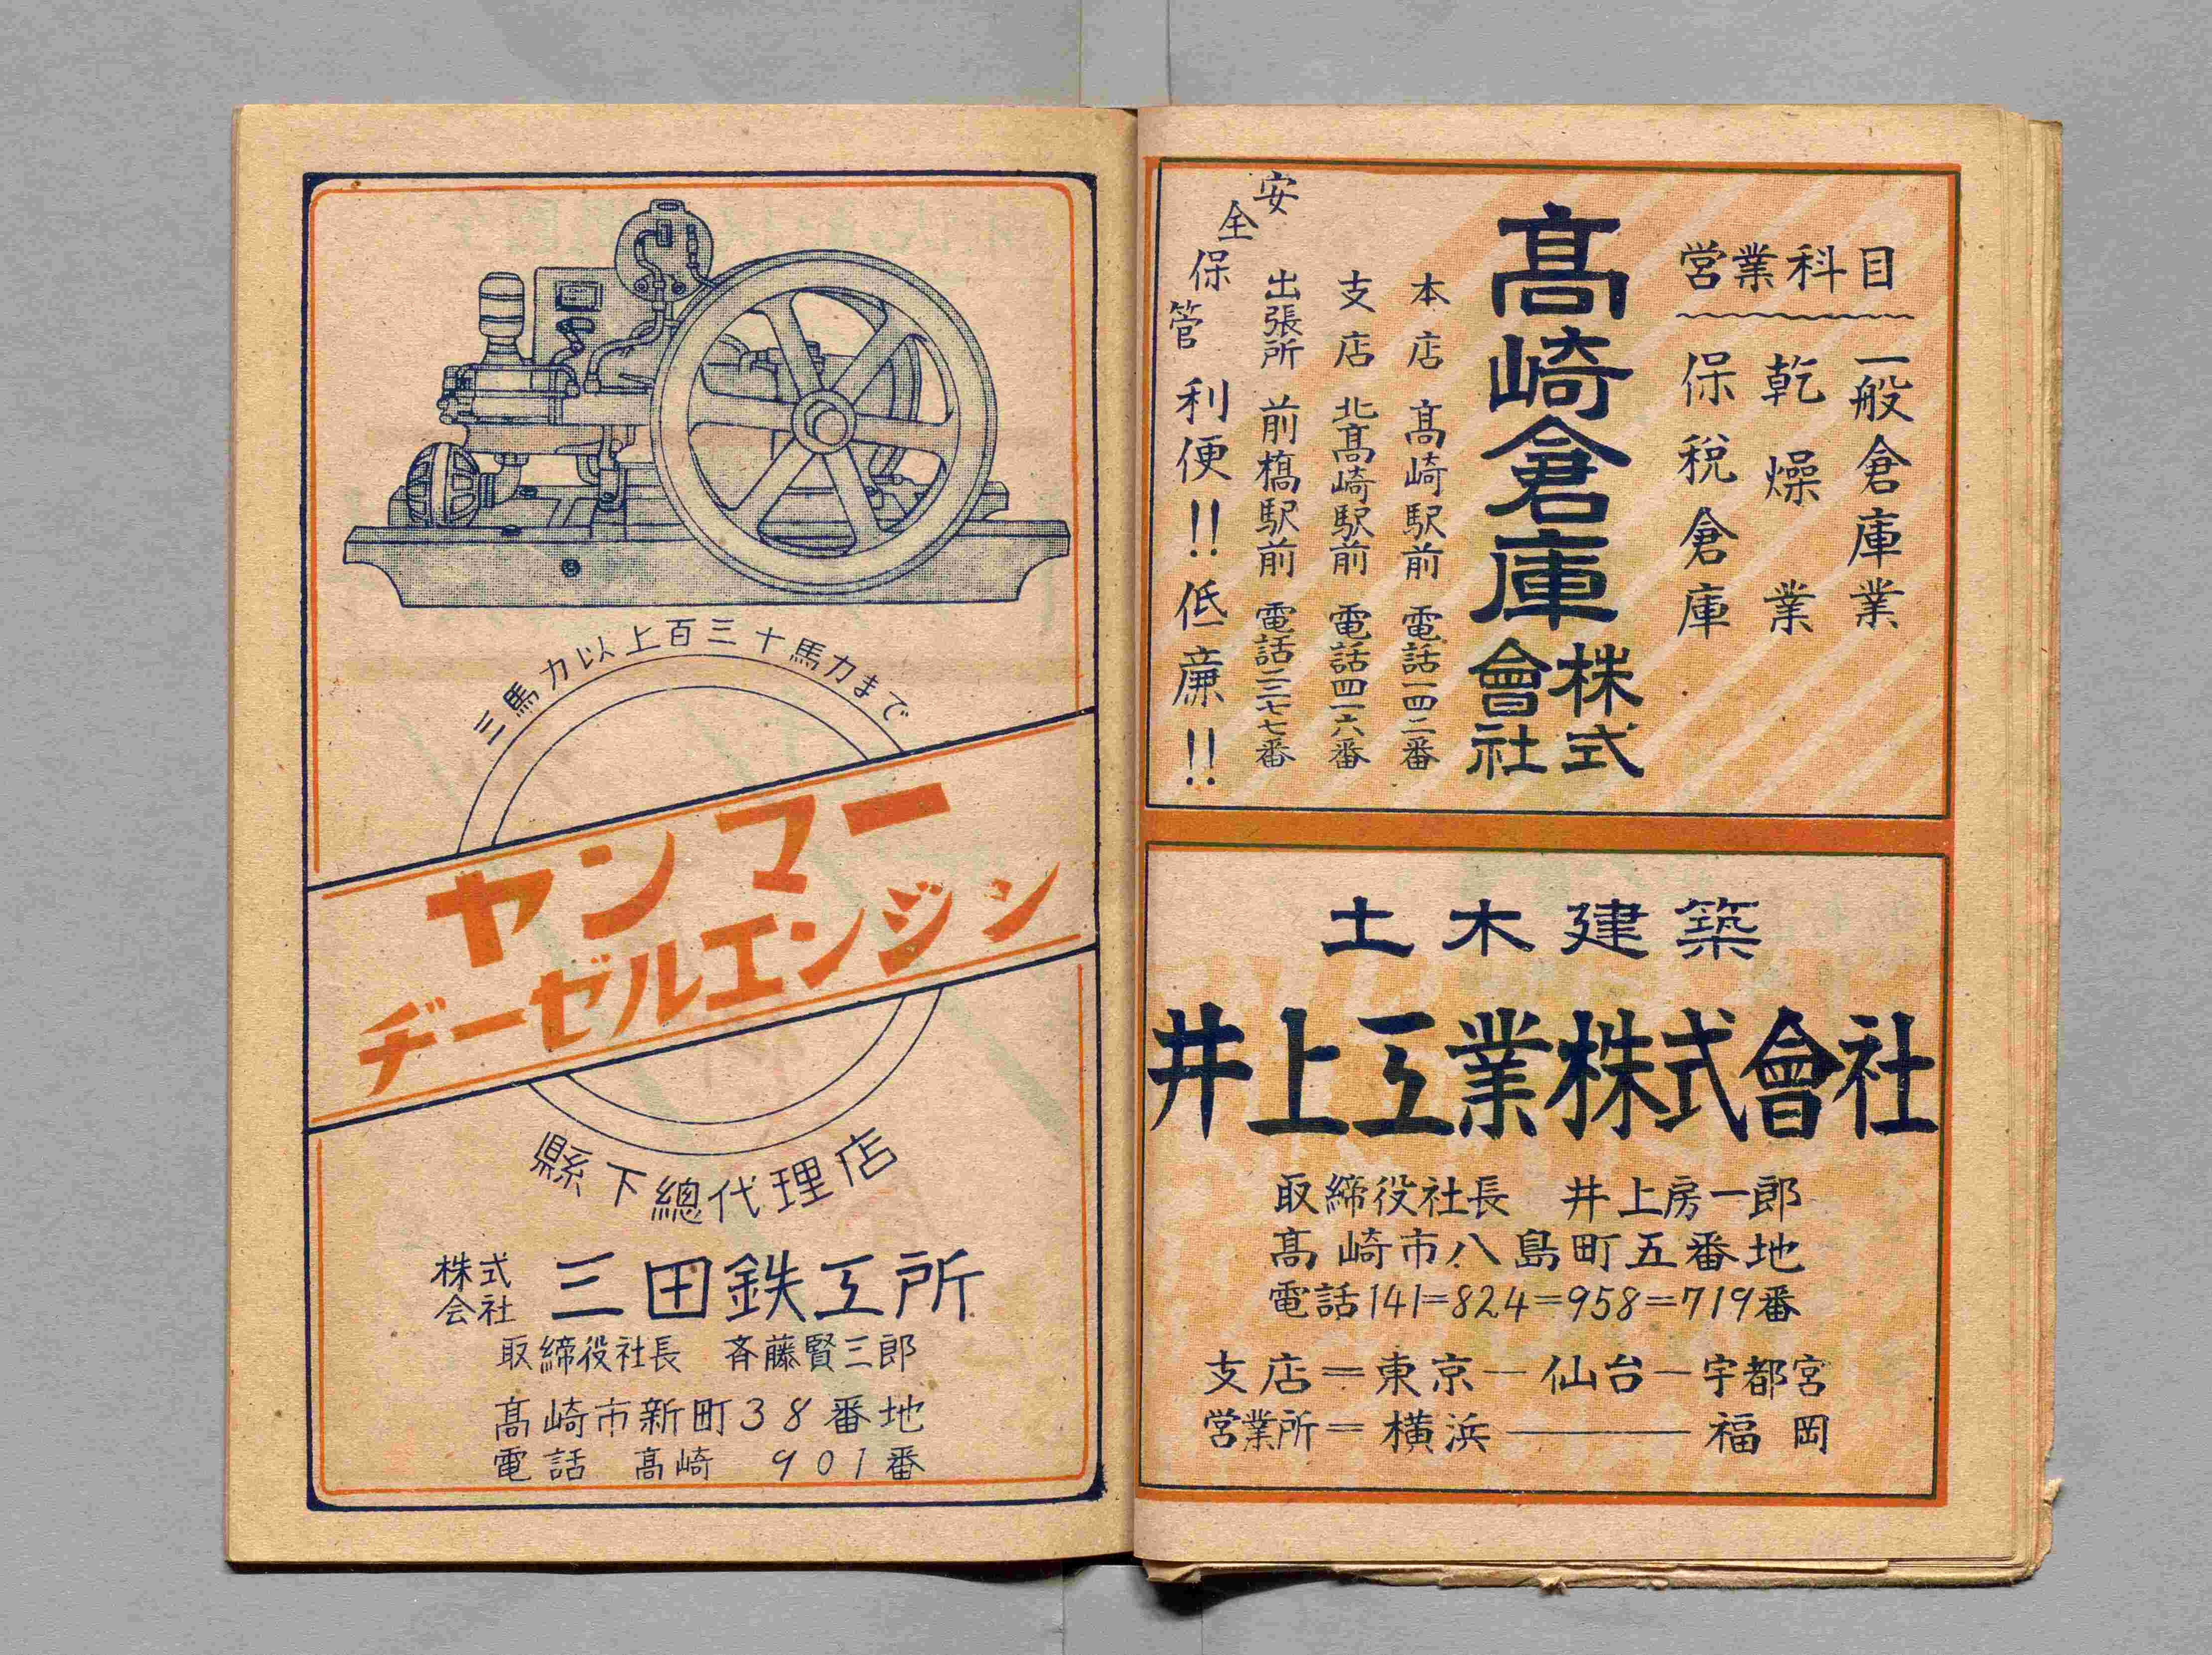 営業科目
一般倉庫業
乾燥業
保税倉庫
髙崎倉庫株式會社
本店 髙崎駅前 電話一四二番
支店 北髙崎駅前 電話四一六番
出張所 前橋駅前 電話二二七七番
安全保管 利便!! 低廉!!
土木建築
井上工業株式會社
取締役社長 井上房一郎
髙崎市八島町五番地
電話141=824=958=719番
支店=東京-仙台-宇都宮
営業所=横浜―福岡
三馬力以上百三十馬力まで
ヤンマー
ヂーゼルエンジン
縣下總代理店
株式会社 三田鉄工所
取締役社長 斉藤賢三郎
髙崎市新町38番地
電話 髙崎 901番